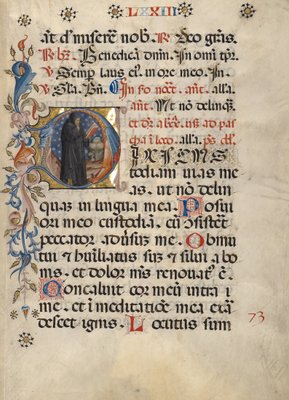 LXXIII
at d' misere nob. R Deo grās.
R br. Benedicā dnm. In omi tpr.
V Semp laus eī. in ore meo. In.
V Gla. Bn. In ſo noct. ant. alla.
ant. Ut nō delinq̄.
DIXI CUS
todiam uias me
as. ut nō delin
quas in lingua mea. Posui
ori meo custodiā. cū ɔsisteret
peccator adūsuȝ me. Obmu
tui & huiliatus suȝ & silui a bo
nis. et dolor mīs renouat' ē.
Concaluit cor meū intra
me. et ī meditatiōe mea exar
descet ignis. Locutus sum
73